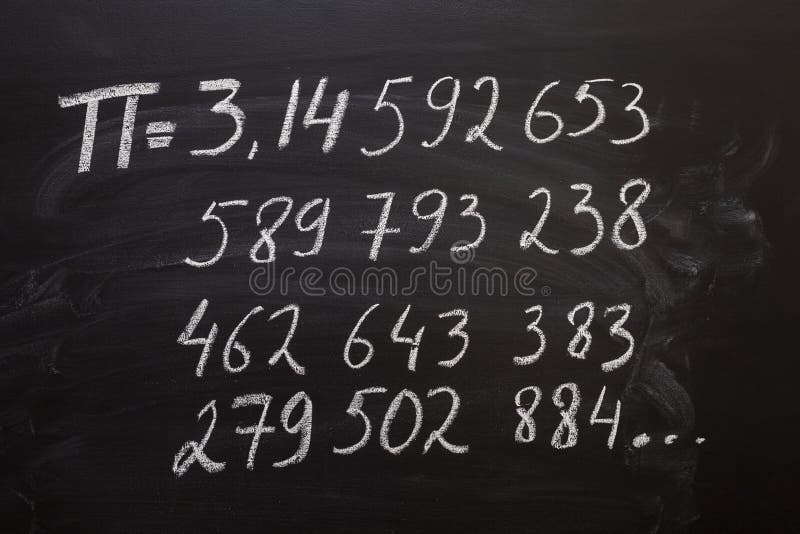 π=3,14 592 653
589 793 238
462 643 383
279 502 884...
dreamstime